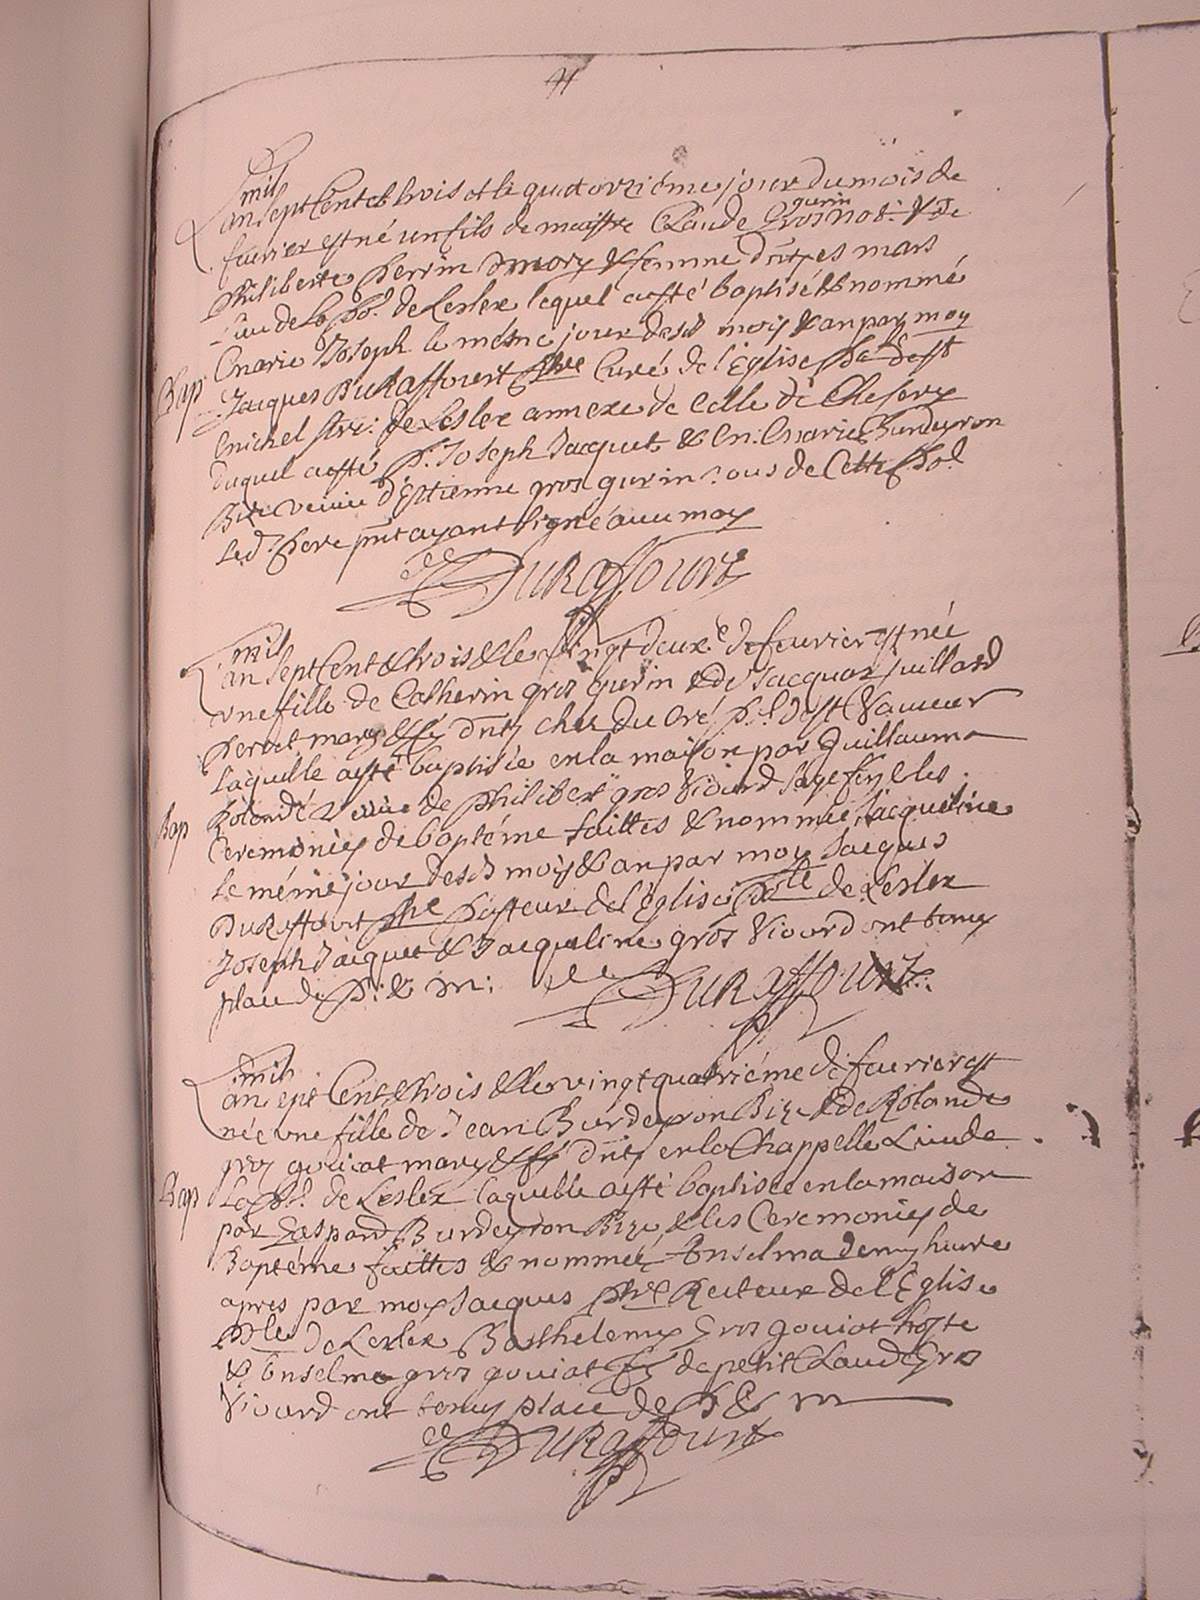 mil
Lan sept Cent et trois et le quatorziéme jour du mois de
gurin
fevrier est né un fils de maistre Claude Gros not: & de
Philiberte Perrin Emory & femme
de la de Lesler lequel a esté baptisé & nommé
Marie Joseph le mesme jour desd mois & an par moy
Bap
Jacques Duraffourt ptre Curé de l'Eglise
Michel de Lesler annexe de celle de Chesery
duquel a esté P: Joseph Jacquet & M: Marie Burdeyron
Bize veuve d'Estienne gros gurin tous de Cette
Led: Pere pnt ayant signé avec moy
Duraffourt
mil
Lan sept Cent & trois & le vingt deux.e de fevrier est née
une fille de Catherin gros gurin & de Jacqua Juillard
Perret mary & fe
laquelle a esté baptisée en la maison par Guillauma
veuve de Philibert gros Vioard sage fe & les
Bap
Ceremonies de baptéme faittes & nommée Jacqueline
le méme jour desd mois & an par moy Jacques
Duraffourt ptre Pasteur de l'Eglise de Lesler
Joseph Jacquet & Jacqueline gros Vioard ont tenu
place de P: & M:
Duraffourt
mil
Lan sept Cent & trois & le vingt quatriéme de fevrier est
née une fille de Jean Burdeyron Bize & de Rolande
gros goujat mary & fe en la Chappelle Lieu de
Bap
la de Lesler laquelle a esté baptisée en la maison
par Gaspard Burdeyron Bize & les Ceremonies de
Baptéme faittes & nommée Anselma demy heure
apres par moy Jacques ptre Recteur de l'Eglise
de Lesler Barthelemy Gros goujat hoste
& Anselma gros goujat fe de petit Claude Gros
Vioard ont tenu place de P & M
Duraffourt